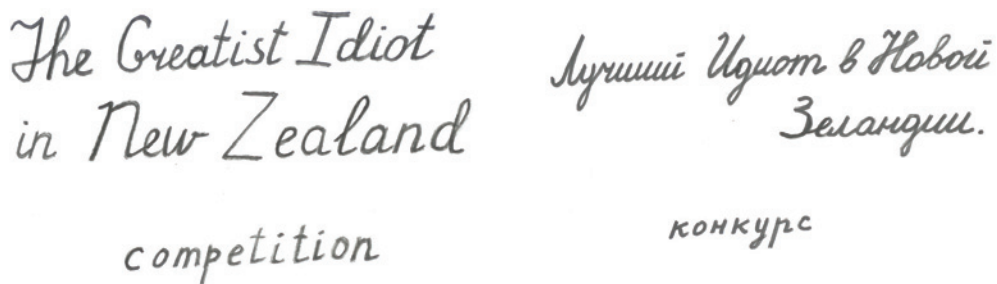 The Greatist Idiot
in New Zealand
competition
Лучший Идиот в Новой
Зеландии.
конкурс